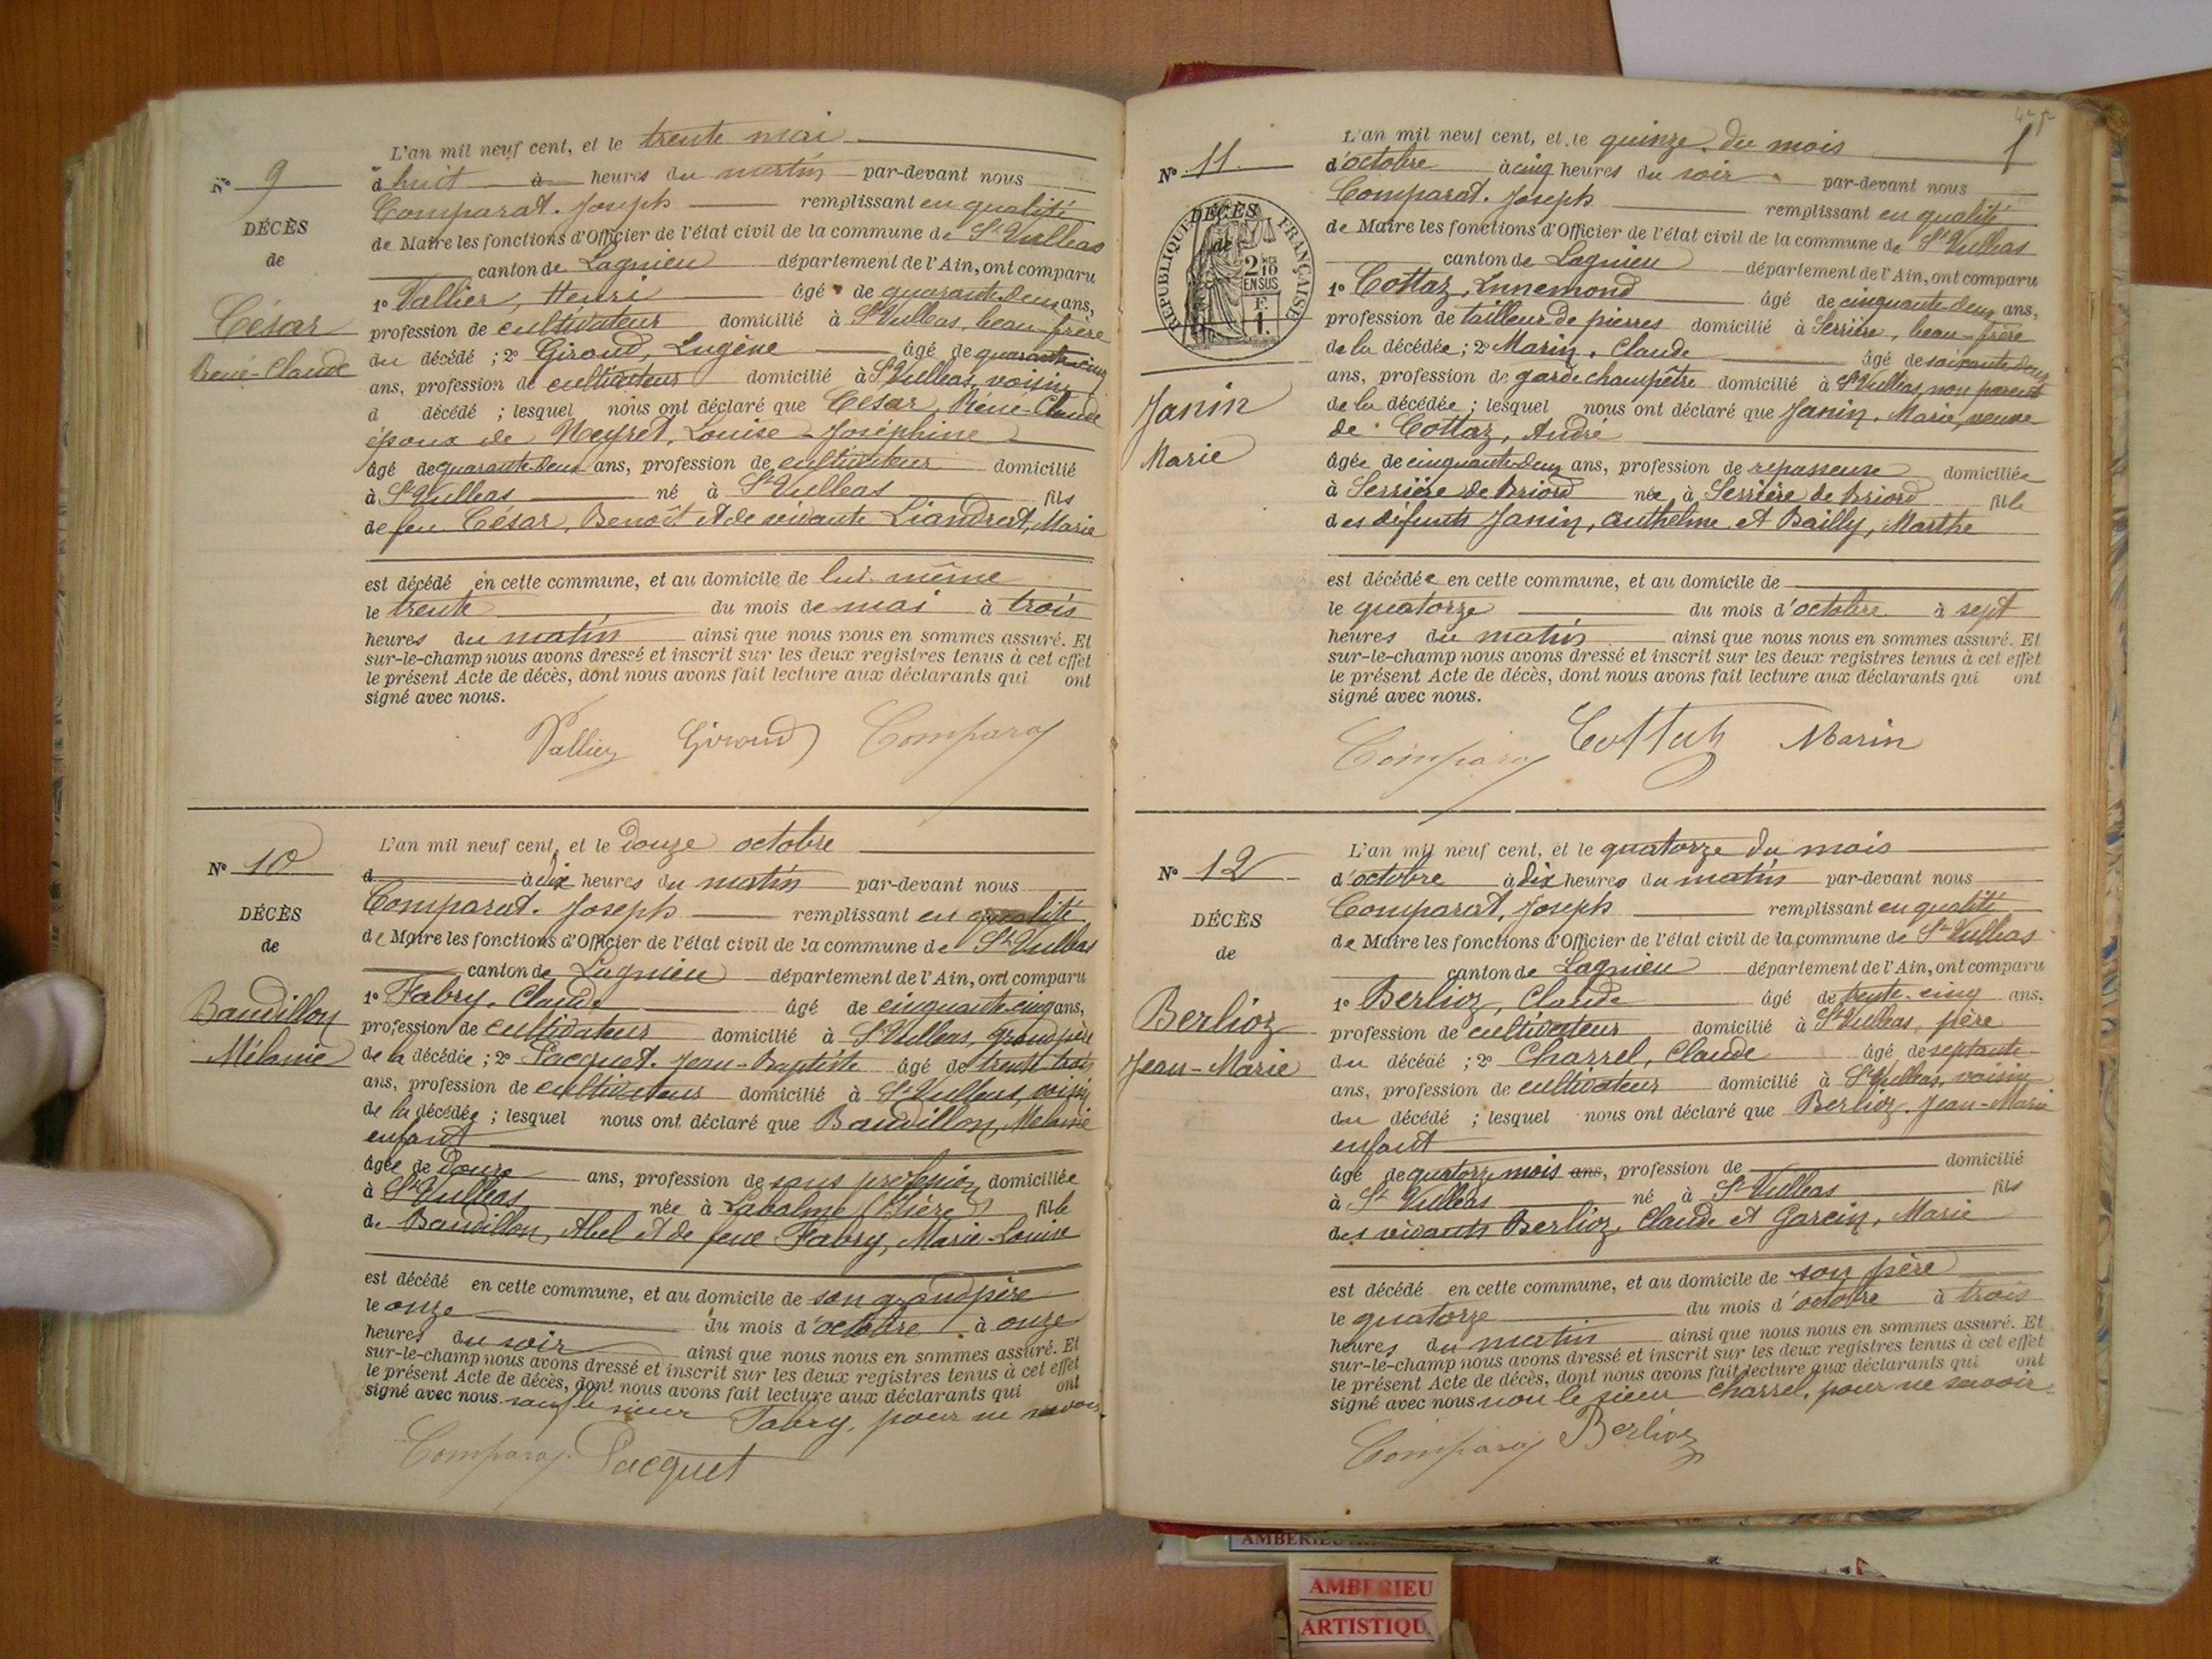 L'an mil neuf cent, et le trente mai
N° 9
à huit à heures du matin par-devant nous
Comparat. Joseph remplissant en qualité
DÉCÈS
de Maire les fonctions d'Officier de l'état civil de la commune de St Vulbas
de
canton de Lagnieu département de l'Ain, ont comparu
1° Vallier, Henri âgé de quarante-deux ans,
César
profession de cultivateur domicilié à St Vulbas, beau-frère
René-Claude
du décédé ; 2° Giroud, Eugène âgé de quarante-cinq
ans, profession de cultivateur domicilié à St Vulbas, voisin
d décédé ; lesquel nous ont déclaré que César, René-Claude
époux de Neyret, Louise-Joséphine
âgé de quarante-deux ans, profession de cultivateur domicilié
à St Vulbas né à St Vulbas fils
de feu César, Benoît et de vivante Liandrat, Marie
est décédé en cette commune, et au domicile de lui même
le trente du mois de mai à trois
heures du matin ainsi que nous nous en sommes assuré. Et
sur-le-champ nous avons dressé et inscrit sur les deux registres tenus à cet effet
le présent Acte de décès, dont nous avons fait lecture aux déclarants qui ont
signé avec nous.
Vallier Giroud Comparat
L'an mil neuf cent, et le douze octobre
N° 10
d à dix heures du matin par-devant nous
Comparat. Joseph remplissant en qualité
DÉCÈS
de Maire les fonctions d'Officier de l'état civil de la commune de St Vulbas
de
canton de Lagnieu département de l'Ain, ont comparu
1° Fabry, Claude âgé de cinquante-cinq ans,
Baudillon
profession de cultivateur domicilié à St Vulbas, grand père
Mélanie
de la décédée ; 2° Pacquet. Jean-Baptiste âgé de trente trois
ans, profession de cultivateur domicilié à St Vulbas, voisin
de la décédée ; lesquel nous ont déclaré que Baudillon, Mélanie
enfant
âgée de douze ans, profession de sans profession domiciliée
à St Vulbas née à Labalme (Isère) fille
de Baudillon, Abel et de feue Fabry, Marie-Louise
est décédé en cette commune, et au domicile de son grand père
le onze du mois d'octobre à onze
heures du soir ainsi que nous nous en sommes assuré. Et
sur-le-champ nous avons dressé et inscrit sur les deux registres tenus à cet effet
le présent Acte de décès, dont nous avons fait lecture aux déclarants qui ont
signé avec nous. sauf le sieur Fabry, pour ne savoir.
Comparat. Pacquet
L'an mil neuf cent, et le quinze du mois
N° 11
d'octobre à cinq heures du soir par-devant nous
Comparat. Joseph remplissant en qualité
DÉCÈS
de
RÉPUBLIQUE FRANÇAISE
2/10 EN SUS
F.
1.
de Maire les fonctions d'Officier de l'état civil de la commune de St Vulbas
canton de Lagnieu département de l'Ain, ont comparu
1° Cottaz, Ennemond âgé de cinquante-deux ans,
profession de tailleur de pierres domicilié à Serrière, beau-frère
de la décédée ; 2° Marin, Claude âgé de soixante-deux
ans, profession de garde champêtre domicilié à St Vulbas, non parent
Janin
Marie
de la décédée ; lesquel nous ont déclaré que Janin, Marie, veuve
de Cottaz, André
âgée de cinquante-deux ans, profession de repasseuse domiciliée
à Serrière de Briord née à Serrière de Briord fille
des défunts Janin, Anthelme et Bailly, Marthe
est décédée en cette commune, et au domicile de
le quatorze du mois d'octobre à sept
heures du matin ainsi que nous nous en sommes assuré. Et
sur-le-champ nous avons dressé et inscrit sur les deux registres tenus à cet effet
le présent Acte de décès, dont nous avons fait lecture aux déclarants qui ont
signé avec nous.
Comparat Cottaz Marin
L'an mil neuf cent, et le quatorze du mois
N° 12
d'octobre à dix heures du matin par-devant nous
Comparat, Joseph remplissant en qualité
DÉCÈS
de Maire les fonctions d'Officier de l'état civil de la commune de St Vulbas
de
canton de Lagnieu département de l'Ain, ont comparu
1° Berlioz, Claude âgé de trente-cinq ans,
Berlioz
profession de cultivateur domicilié à St Vulbas, père
Jean-Marie
du décédé ; 2° Charrel, Claude âgé de septante
ans, profession de cultivateur domicilié à St Vulbas, voisin
du décédé ; lesquel nous ont déclaré que Berlioz. Jean-Marie
enfant
âgé de quatorze mois ans, profession de domicilié
à St Vulbas né à St Vulbas fils
des vivants Berlioz, Claude et Garcin, Marie
est décédé en cette commune, et au domicile de son père
le quatorze du mois d'octobre à trois
heures du matin ainsi que nous nous en sommes assuré. Et
sur-le-champ nous avons dressé et inscrit sur les deux registres tenus à cet effet
le présent Acte de décès, dont nous avons fait lecture aux déclarants qui ont
signé avec nous non le sieur Charrel, pour ne savoir.
Comparat Berlioz
AMBERIEU
AMBERIEU
ARTISTIQU